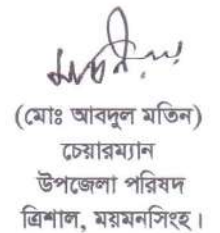 (মোঃ আবদুল মতিন)
চেয়ারম্যান
উপজেলা পরিষদ
ত্রিশাল, ময়মনসিংহ।